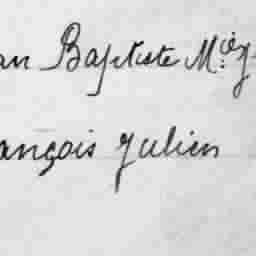 an Baptiste
ançois Julien